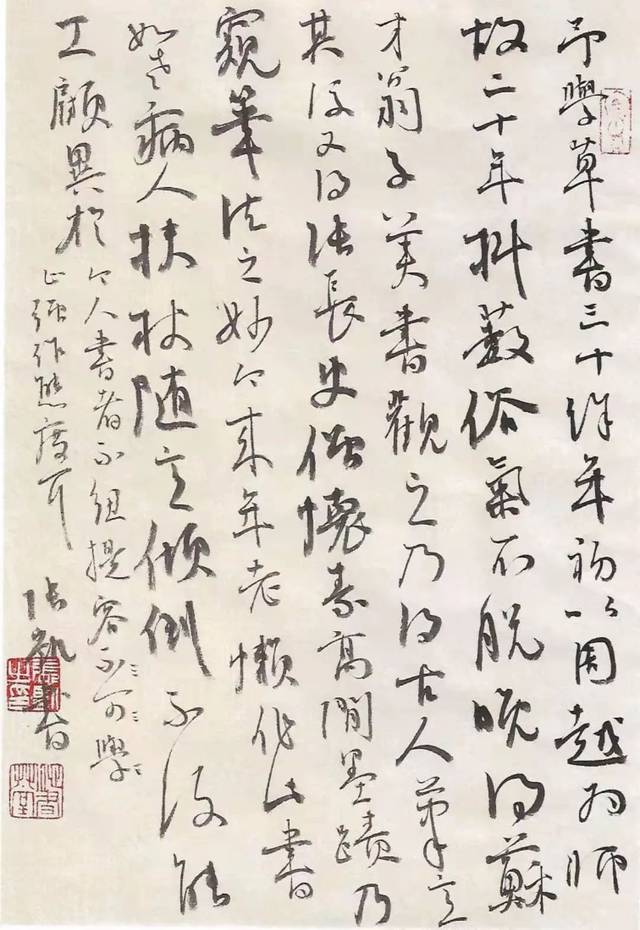 予學草書三十餘年初以周越為師
故二十年抖藪俗氣不脫晚得蘇
才翁子美書觀之乃得古人筆意
其後又得張長史僧懷素高閒墨蹟乃
窺筆法之妙今來年老懶作此書
如老病人扶杖隨意傾倒不復能
工顧異於
今人書者不紐提容不可學
止強作態度耳
張凱書